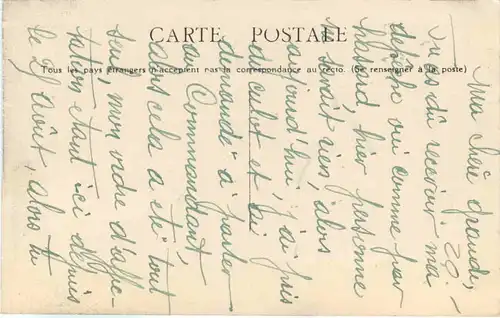 CARTE POSTALE
Tous les pays étrangers n'acceptent pas la correspondance au recto. (Se renseigner à la poste)
Mon cher grand,
Tu as dû recevoir ma
dépêche oui comme par
hasard, hier personne
ne savait rien, alors
aujourd'hui, j'ai pris
du culot et j'ai
demandé à parler
au Commandant,
alors cela a été tout
seul, mon ordre d'affec-
tation étant ici depuis
le 29 août, alors tu